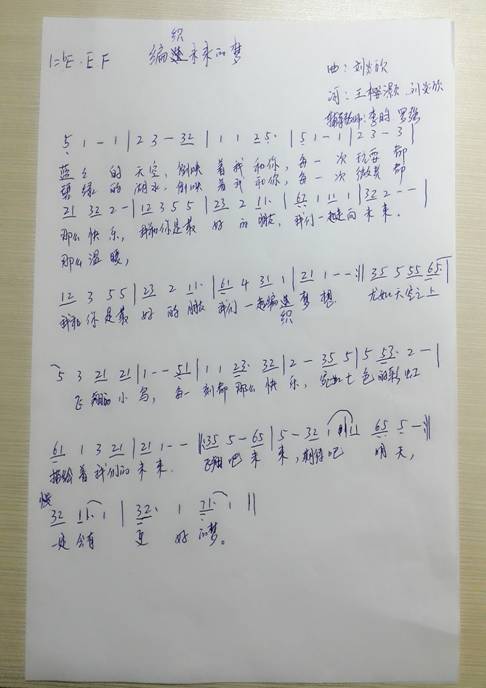 织
1=♭E·E F 编造未来的梦
曲:刘
词:王
5 1 - 1 | 2 3 - 32 | 1 1 2 5· | 5 1 - 1 | 2 3 - 3 |
蓝蓝 的 天空,倒映 着我 和你,每一 次 玩耍 都
碧绿 的 湖水,倒映 着我 和你,每一 次 微笑 都
21 32 2 - | 12 3 5 5 | 23 2 11· | 61 1 11 1 | 32 2 - - |
那么 快乐,我和你是最 好 的 我们一起走向 未来。
那么 温暖,
12 3 5 5 | 23 2 11· | 61 4 31 1 | 21 1 - - :|| 35 5 55 65·
我和你是最 好 的 我们 一起编造 梦想. 尤如天空之上
织
5 3 21 21 | 1 - - 51 | 1 1 23· 32 | 2 - 35 5 | 5 53· 2 - |
飞翔的 小鸟,每一 刻都 那么 快乐,宛如七 色的彩虹
61 1 3 21 | 21 1 - - ||: 35 5 - 65 | 5 - 32 1 1 65 5 - :||
描绘着 我们的 未来. 飞翔 吧 未 来,期待吧 明天,
慢
32 11· 1 | 32· 1 21· 1 ||
一定会有 更 好 的梦。